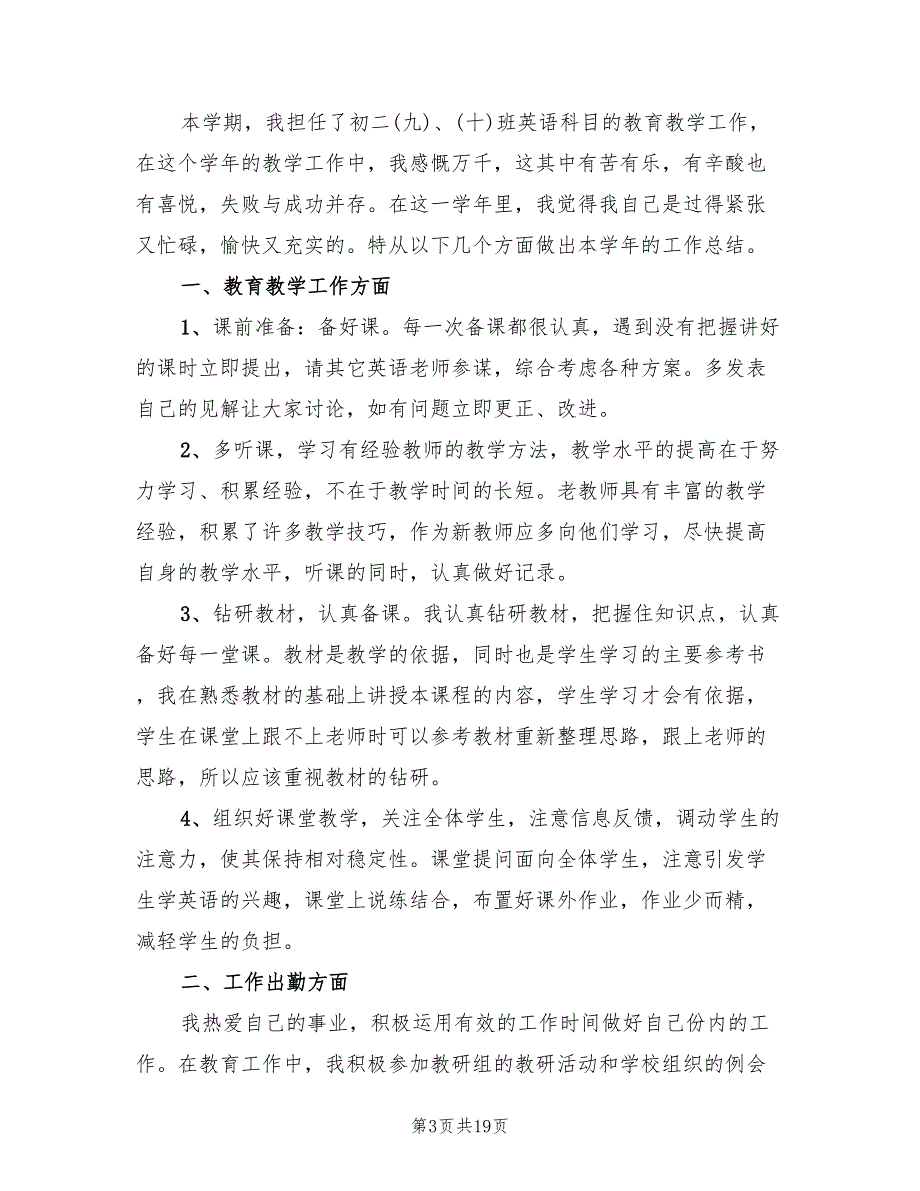 本学期，我担任了初二(九)、(十)班英语科目的教育教学工作，
在这个学年的教学工作中，我感慨万千，这其中有苦有乐，有辛酸也
有喜悦，失败与成功并存。在这一学年里，我觉得我自己是过得紧张
又忙碌，愉快又充实的。特从以下几个方面做出本学年的工作总结。
一、教育教学工作方面
1、课前准备：备好课。每一次备课都很认真，遇到没有把握讲好
的课时立即提出，请其它英语老师参谋，综合考虑各种方案。多发表
自己的见解让大家讨论，如有问题立即更正、改进。
2、多听课，学习有经验教师的教学方法，教学水平的提高在于努
力学习、积累经验，不在于教学时间的长短。老教师具有丰富的教学
经验，积累了许多教学技巧，作为新教师应多向他们学习，尽快提高
自身的教学水平，听课的同时，认真做好记录。
3、钻研教材，认真备课。我认真钻研教材，把握住知识点，认真
备好每一堂课。教材是教学的依据，同时也是学生学习的主要参考书
，我在熟悉教材的基础上讲授本课程的内容，学生学习才会有依据，
学生在课堂上跟不上老师时可以参考教材重新整理思路，跟上老师的
思路，所以应该重视教材的钻研。
4、组织好课堂教学，关注全体学生，注意信息反馈，调动学生的
注意力，使其保持相对稳定性。课堂提问面向全体学生，注意引发学
生学英语的兴趣，课堂上说练结合，布置好课外作业，作业少而精，
减轻学生的负担。
二、工作出勤方面
我热爱自己的事业，积极运用有效的工作时间做好自己份内的工
作。在教育工作中，我积极参加教研组的教研活动和学校组织的例会
第3页共19页